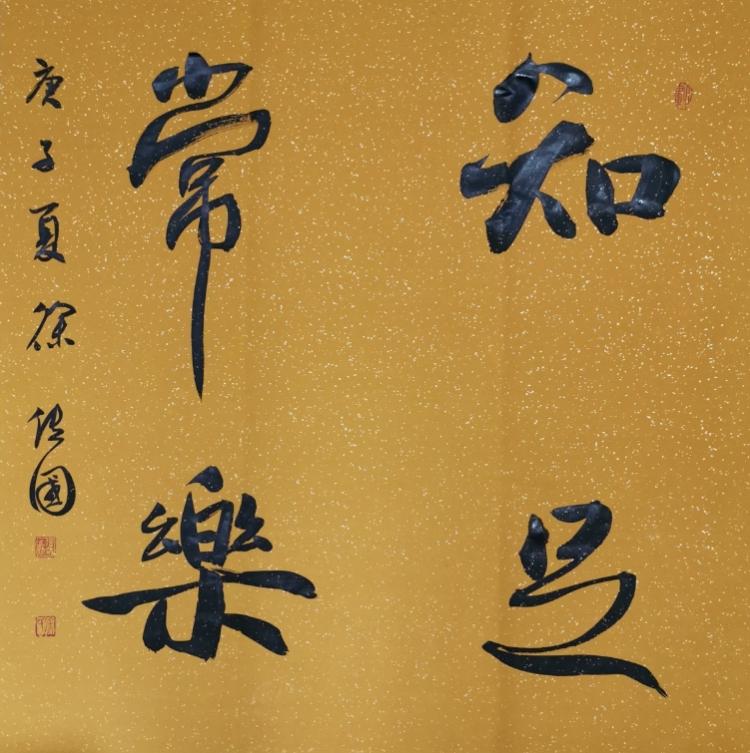 知足
常樂
庚子夏徐传國